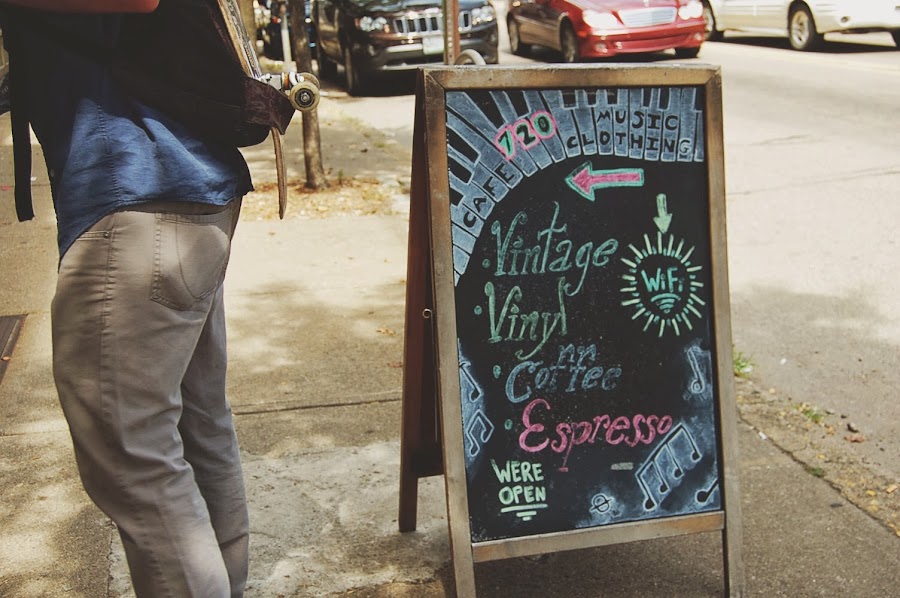 720 MUSIC
CAFE CLOTHING
WiFi
• Vintage
• Vinyl
• Coffee
• Espresso
WERE
OPEN